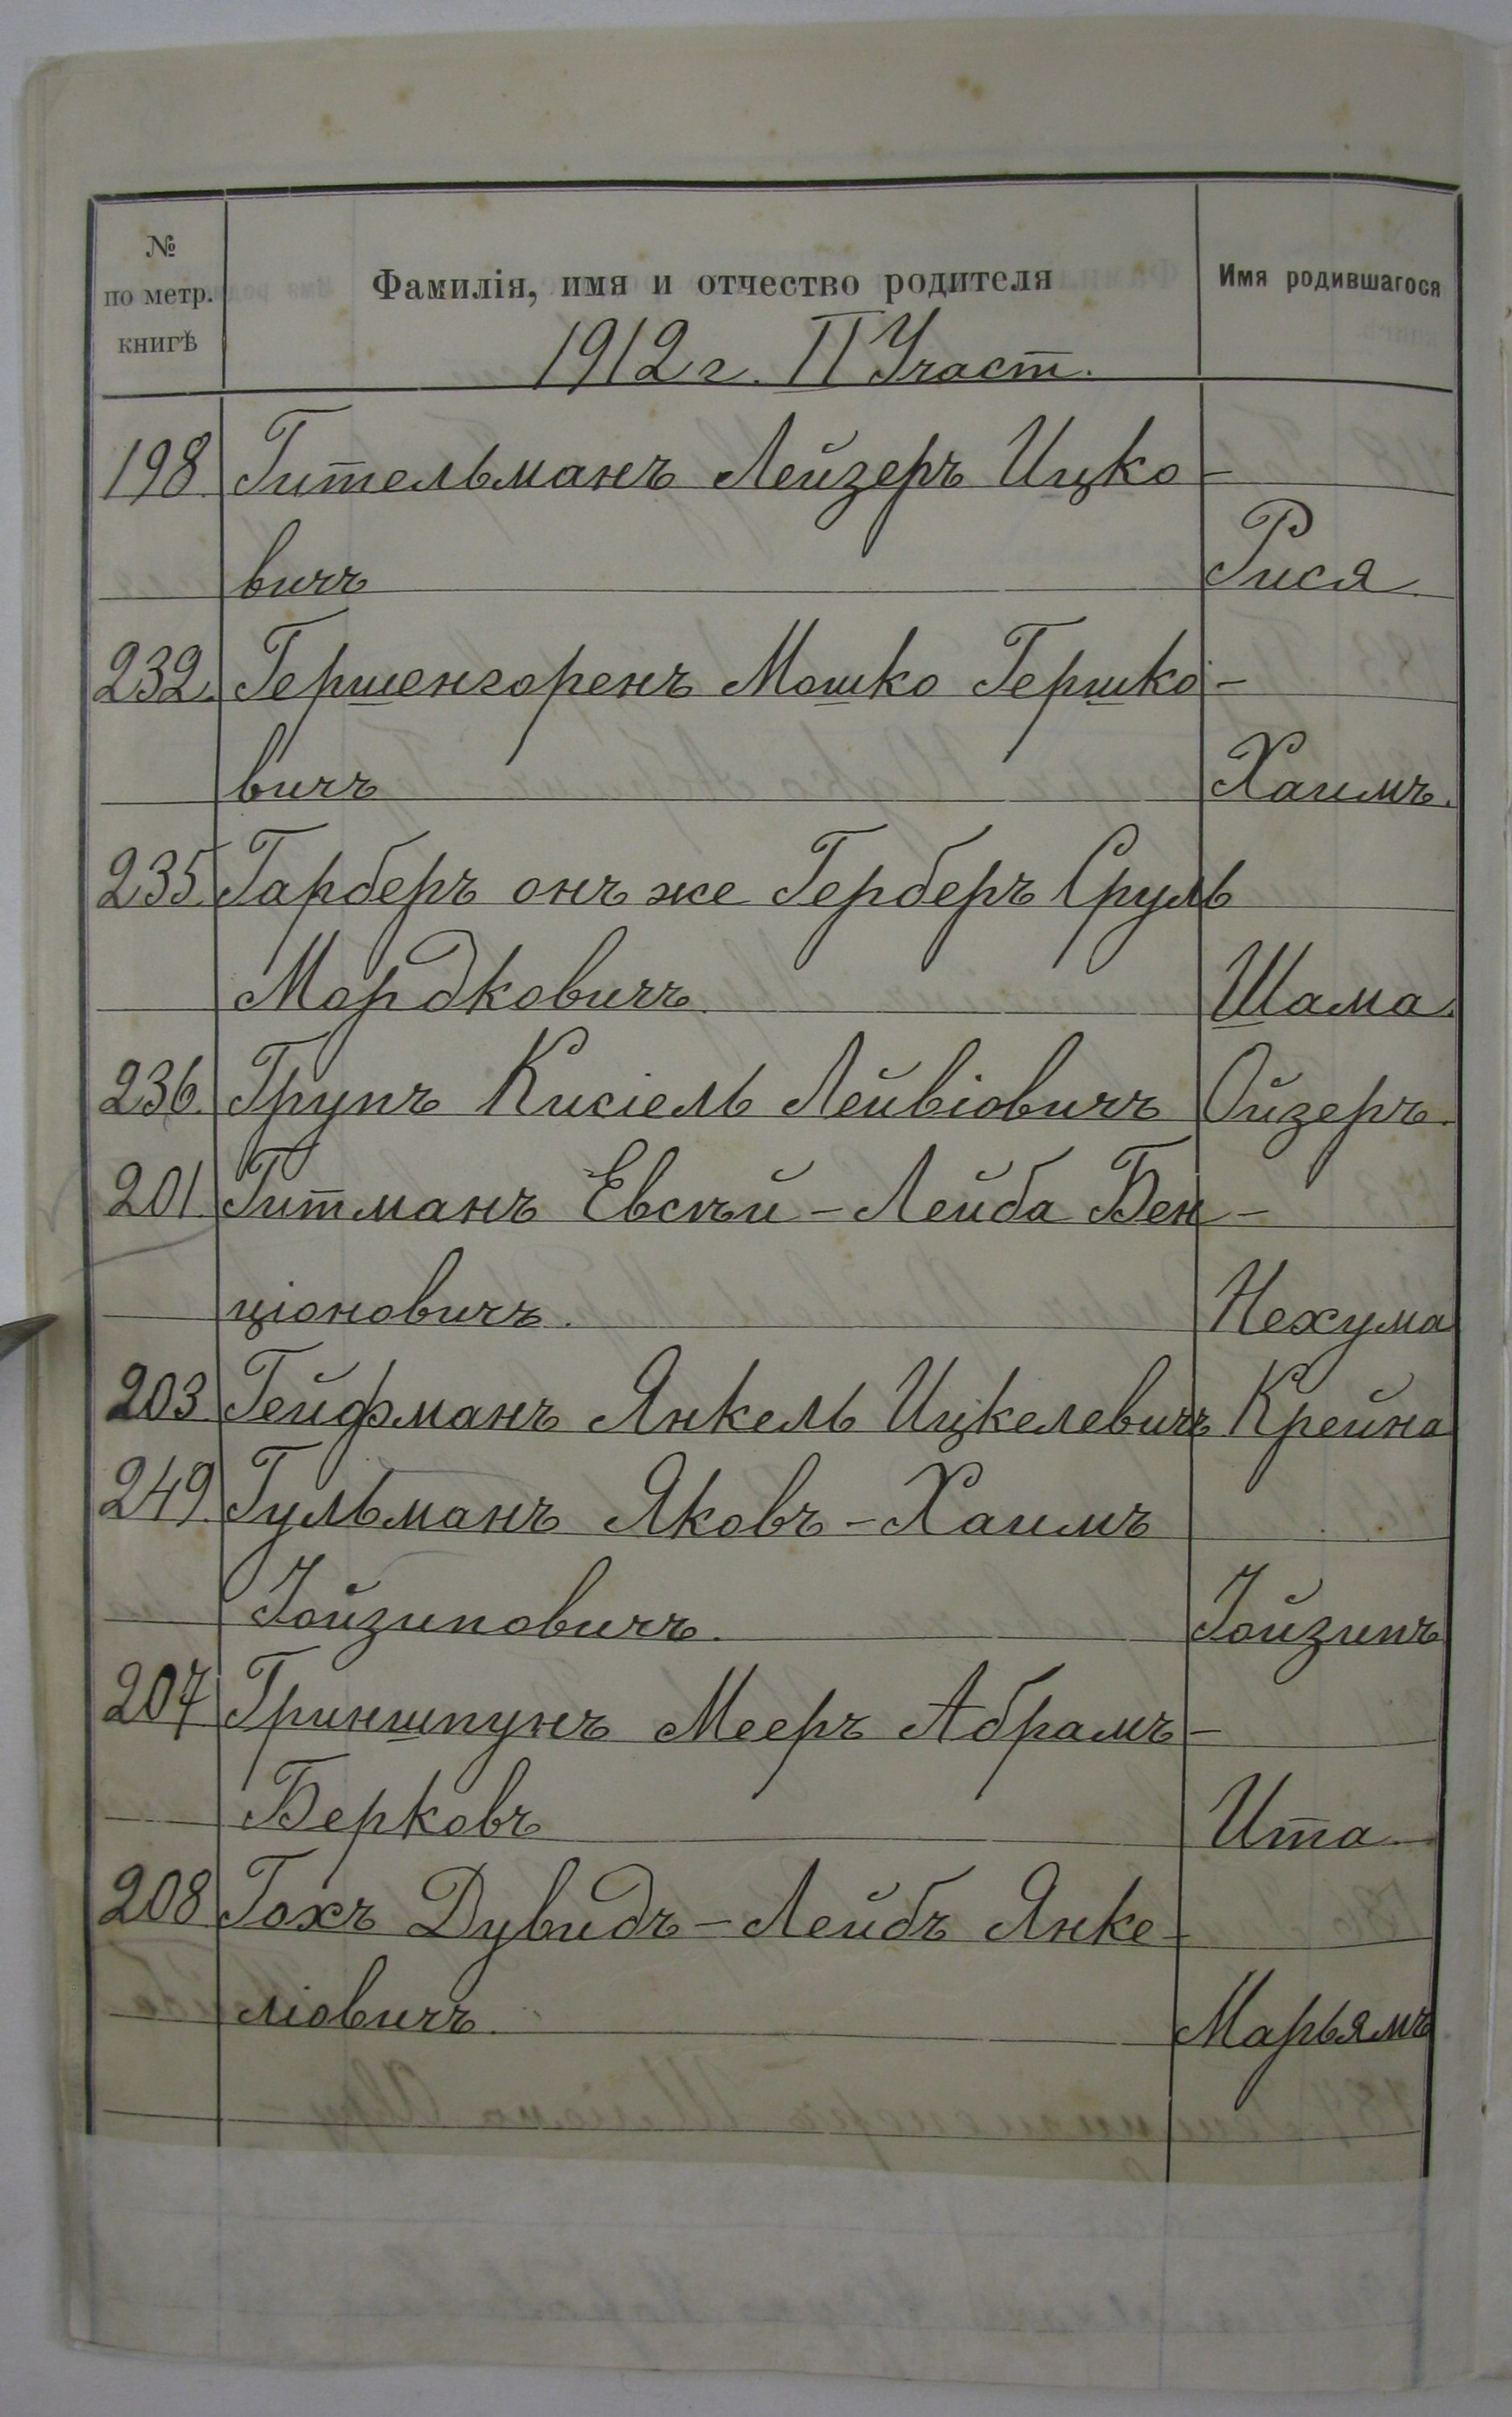 № по метр. книгѣ | Фамилія, имя и отчество родителя | Имя родившагося
1912 г. II Участ.
198. Гительманъ Лейзеръ Ицко-
вичъ Рися
232. Гершенгоренъ Мошко Гершко-
вичъ Хаимъ.
235. Гарберъ онъ же Герберъ Сруль
Мордковичъ. Шама.
236. Групъ Кисіель Лейвіовичъ Ойзеръ.
201. Гитманъ Евсѣй-Лейба Бен-
ціоновичъ. Нехума
203. Гейфманъ Янкель Ицкелевичъ Крейна
249. Гульманъ Яковъ-Хаимъ
Іойзиповичъ. Іойзипъ
207 Гриншпунъ Мееръ Абрамъ-
Берковъ Ита
208 Гохъ Дувидъ-Лейбъ Янке-
ліовичъ. Марьямъ